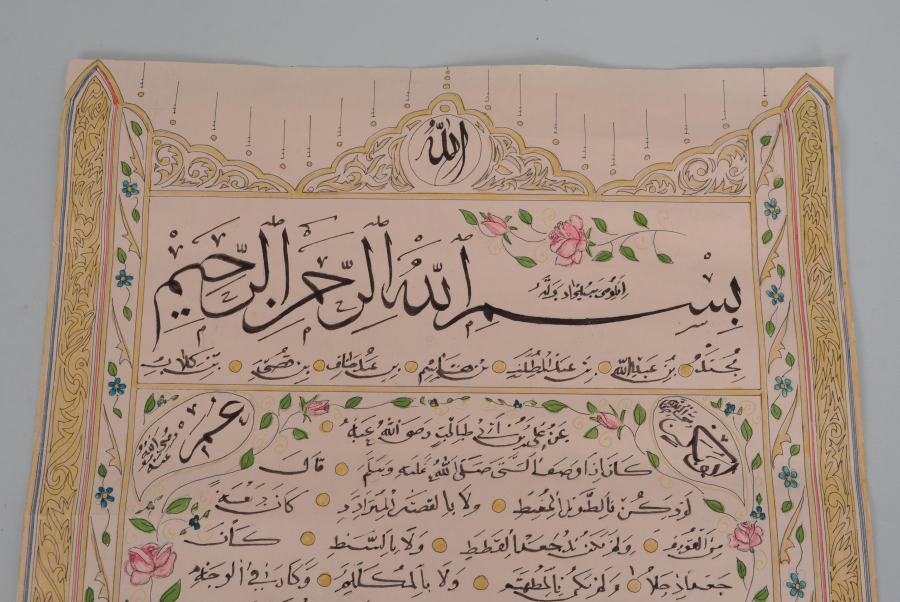 الله
بسم الله الرحمن الرحيم
محمد بن عبد الله بن عبد المطلب بن هاشم بن عبد مناف بن قصي بن كلاب
عمر رضي الله عنه
ابو بكر رضي الله عنه
عن علي بن أبي طالب رضي الله عنه
كان إذا وصف النبي صلى الله عليه وسلم قال
لم يكن بالطويل الممغط ولا بالقصير المتردد كان ربعة
من القوم ولم يكن بالجعد القطط ولا بالسبط كان
جعدا رجلا ولم يكن بالمطهم ولا بالمكلثم وكان في الوجه